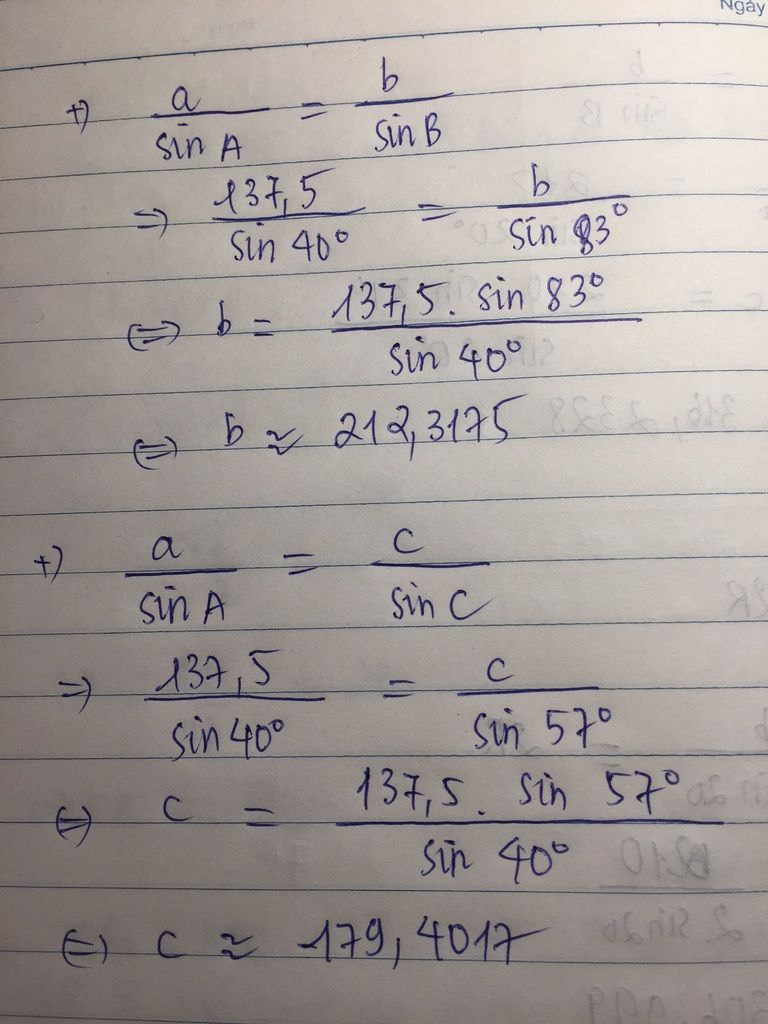 Ngày
+) a/sin A = b/sin B
=> 137,5/sin 40° = b/sin 83°
<=> b = 137,5. sin 83°/sin 40°
<=> b ≈ 212,3175
+) a/sin A = c/sin C
=> 137,5/sin 40° = c/sin 57°
<=> c = 137,5. sin 57°/sin 40°
<=> c ≈ 179,4017